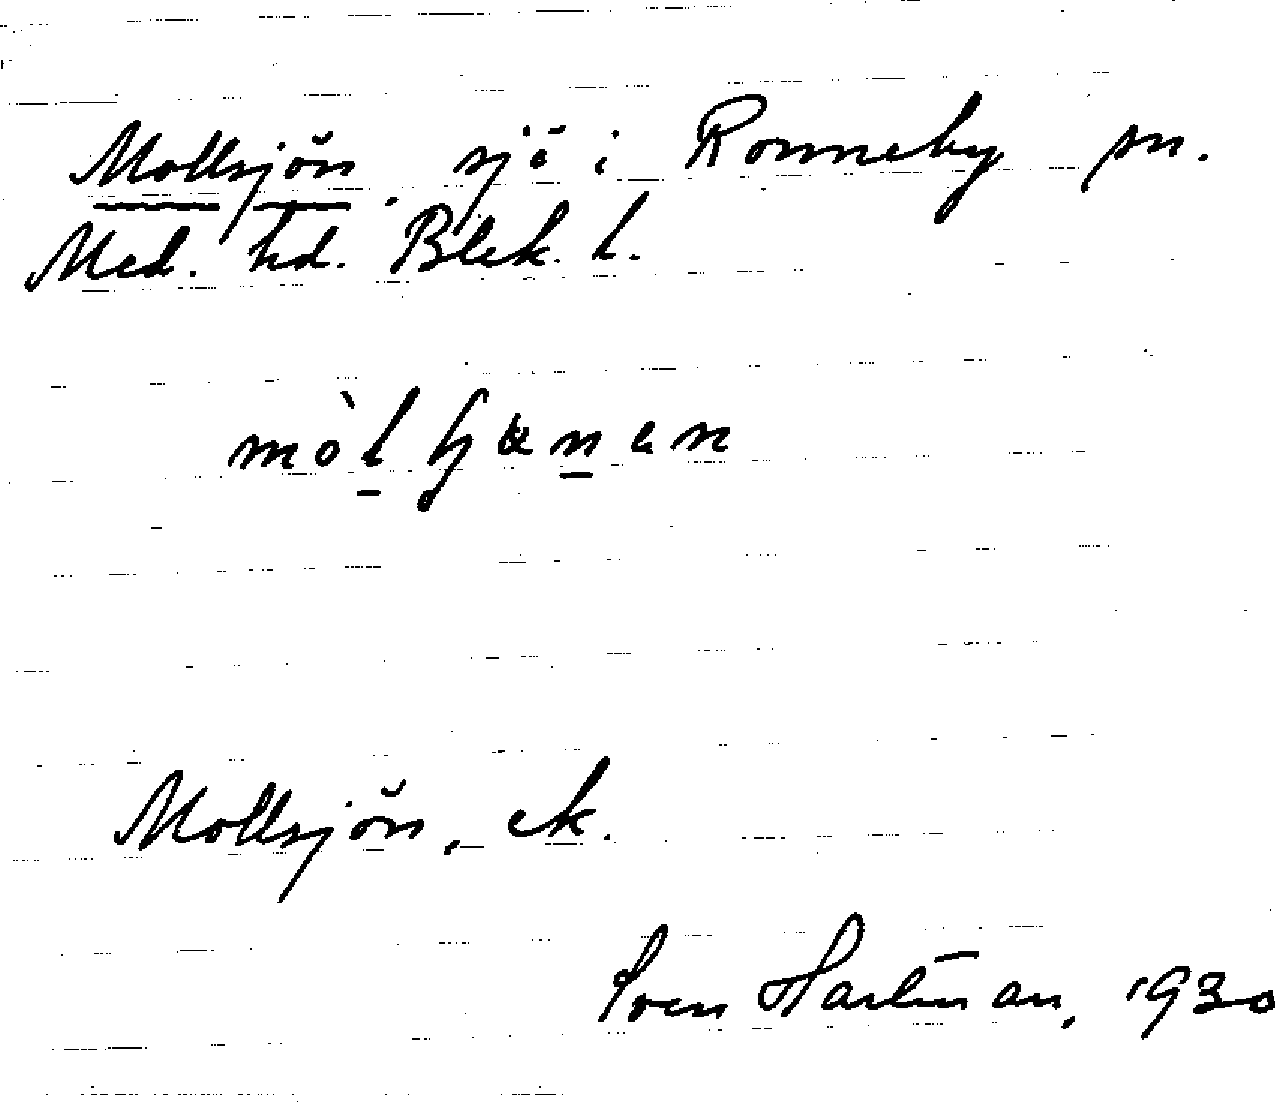 Mollsjön, sjö i Ronneby sn.
Med. hd. Blek. l.
Mollsjön, ek.
Sven Hartman, 1930